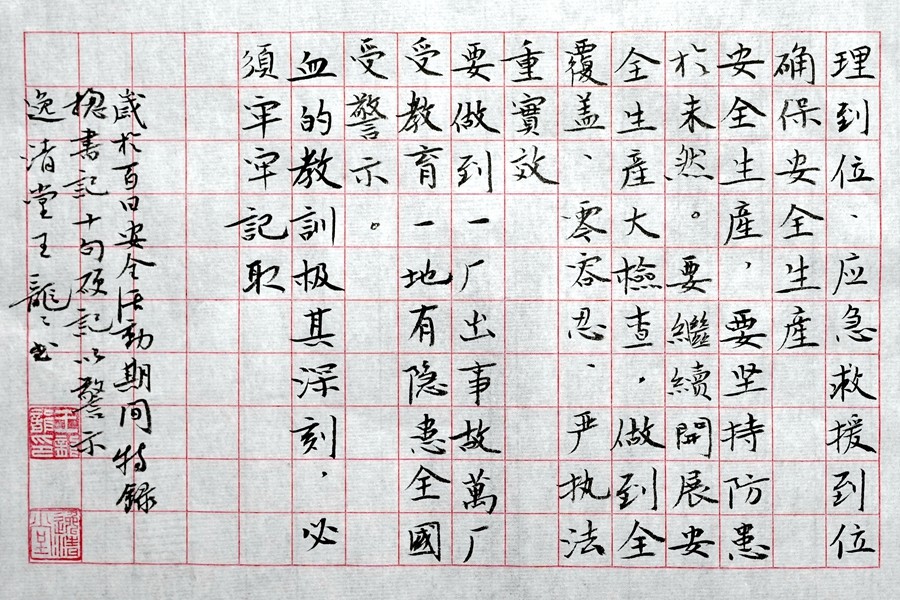 理到位、应急救援到位
确保安全生産
安全生産，要坚持防患
於未然。要繼續開展安
全生産大檢查，做到全
覆盖、零容忍、严执法
重實效
要做到一厂出事故萬厂
受教育一地有隐患全國
受警示。
血的教訓极其深刻，必
須牢牢記取
歲於百日安全活動期间特錄
總書記十句硕記以警示
逸清堂王龍之书